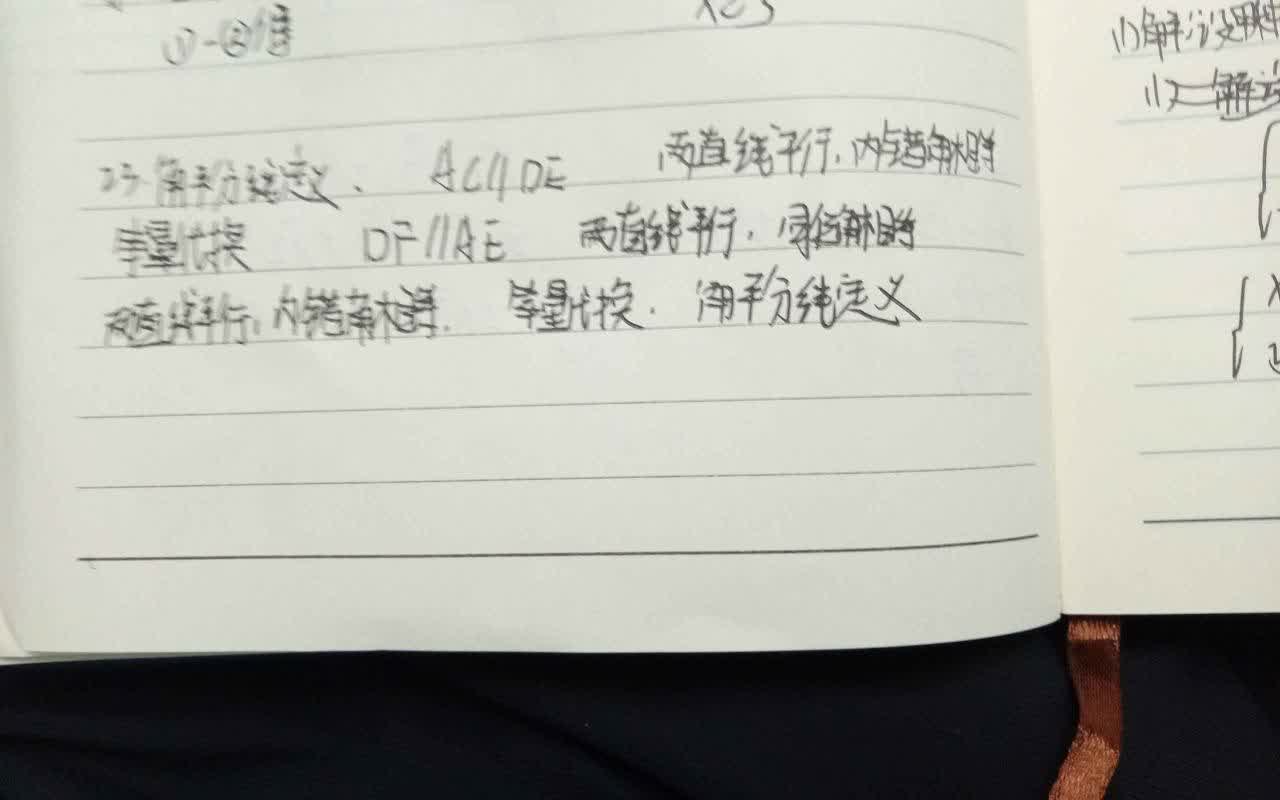 ①-②得
23. 角平分线定义. AC//DE 两直线平行,内错角相等
等量代换 DF//AE 两直线平行,同位角相等
两直线平行,内错角相等. 等量代换. 角平分线定义
(1)解:设
(1)解:设